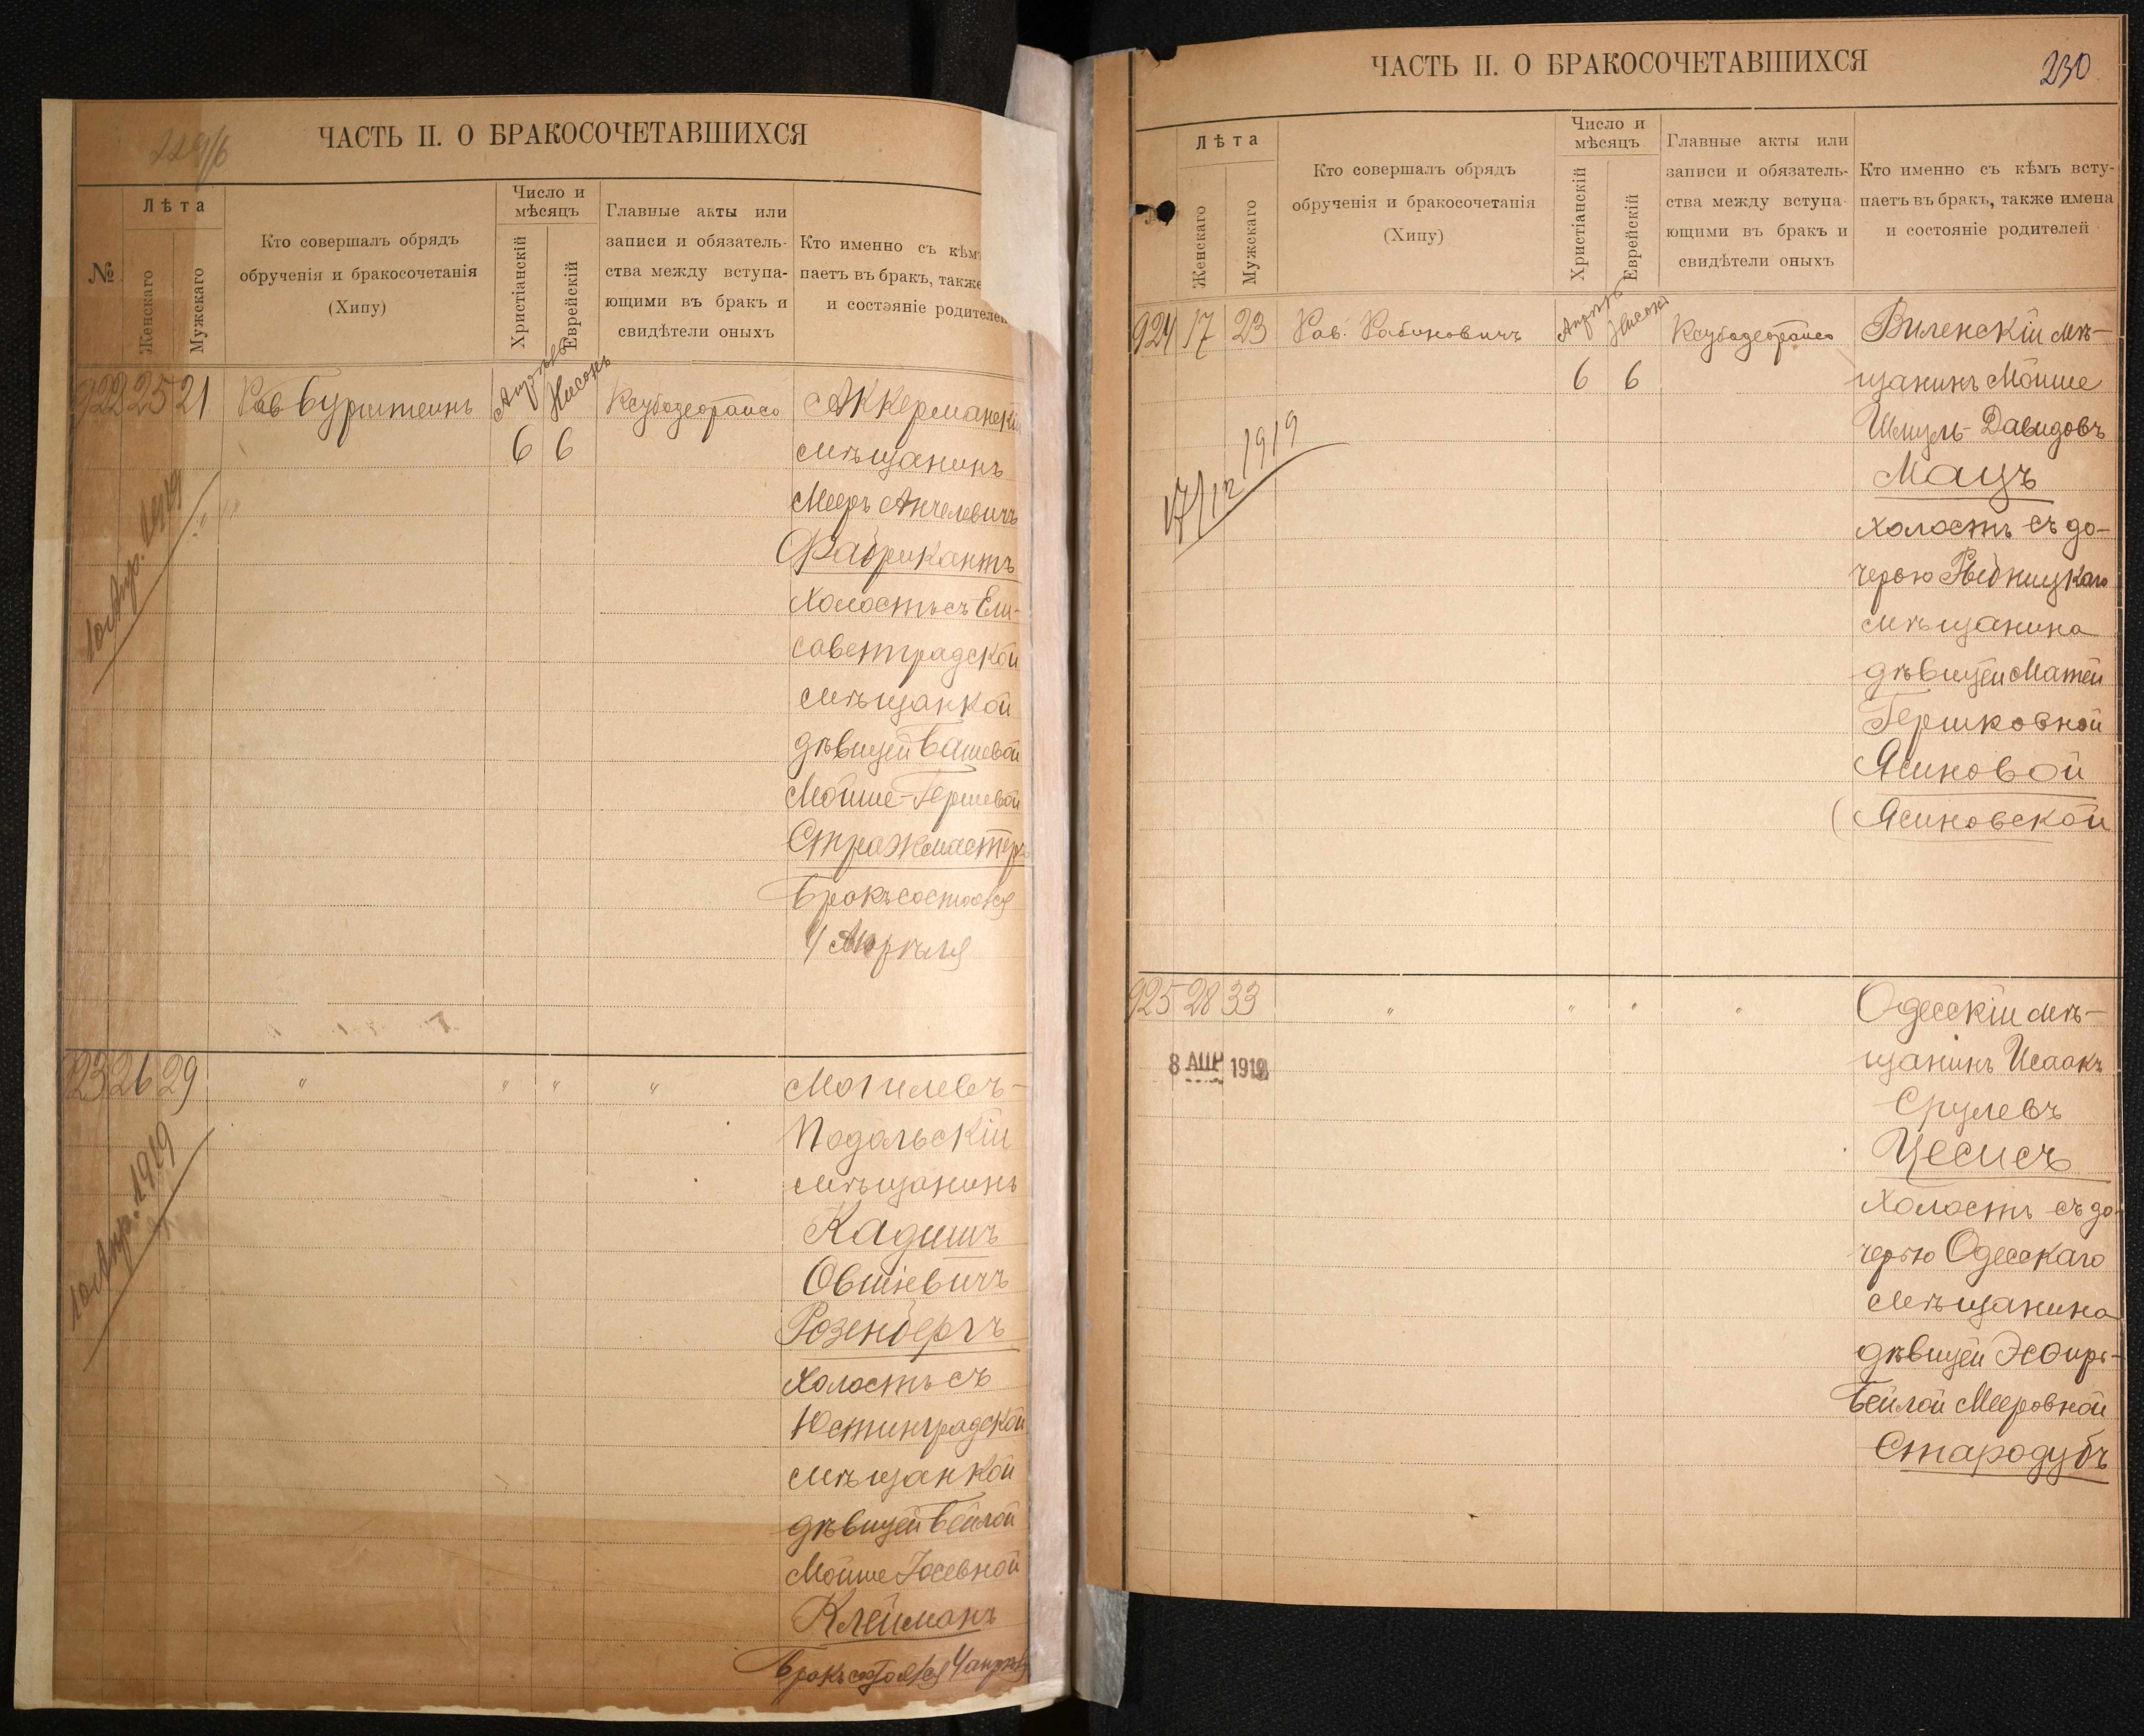 ЧАСТЬ II. О БРАКОСОЧЕТАВШИХСЯ
№
Лѣта
Женскаго
Мужскаго
Кто совершалъ обрядъ
обрученія и бракосочетанія
(Хипу)
Число и
мѣсяцъ
Христіанскій
Еврейскій
Главные акты или
записи и обязатель-
ства между вступа-
ющими въ бракъ и
свидѣтели оныхъ
Кто именно съ кѣмъ
паетъ въ бракъ, также
и состояніе родителей
922 25 21 Рав Бурштейнъ Апрѣль Нисонъ Аккерманскій
6 6 мѣщанинъ
Мееръ Анчелевичъ
Фабрикантъ
холостъ съ Ели-
саветградской
мѣщанкой
дѣвицей Башевой
Мойше-Гершевой
Стражмастеръ
Бракъ состоялся
4 Апрѣля
10 Апр. 1919
923 26 29 " " " " Могилевъ-
Подольскій
мѣщанинъ
Кадишъ
Овшіевичъ
Розенбергъ
холостъ съ
Юстинградской
мѣщанкой
дѣвицей Бейлой
Мойше Іосевной
Клейманъ
Бракъ состоялся 4 апрѣля
10 Апр. 1919
ЧАСТЬ II. О БРАКОСОЧЕТАВШИХСЯ
230
Лѣта
Женскаго
Мужскаго
Кто совершалъ обрядъ
обрученія и бракосочетанія
(Хипу)
Число и
мѣсяцъ
Христіанскій
Еврейскій
Главные акты или
записи и обязатель-
ства между вступа-
ющими въ бракъ и
свидѣтели оныхъ
Кто именно съ кѣмъ всту-
паетъ въ бракъ, также имена
и состояніе родителей
924 17 23 Рав. Рабиновичъ Апрѣль Нисонъ Виленскій мѣ-
6 6 щанинъ Мойше
Шмуль-Давидовъ
Мацъ
холостъ съ до-
черью Рыбницкаго
мѣщанина
дѣвицей Матей
Гершковной
Ясиновой
(Ясиновской
17/IV 1919
925 28 33 " " " " Одесскій мѣ-
щанинъ Исаакъ
Срулевъ
Цесисъ
холостъ съ до-
черью Одесскаго
мѣщанина
дѣвицей Эсфирь-
Бейлой Мееровной
Стародубъ
8 АПР 1919